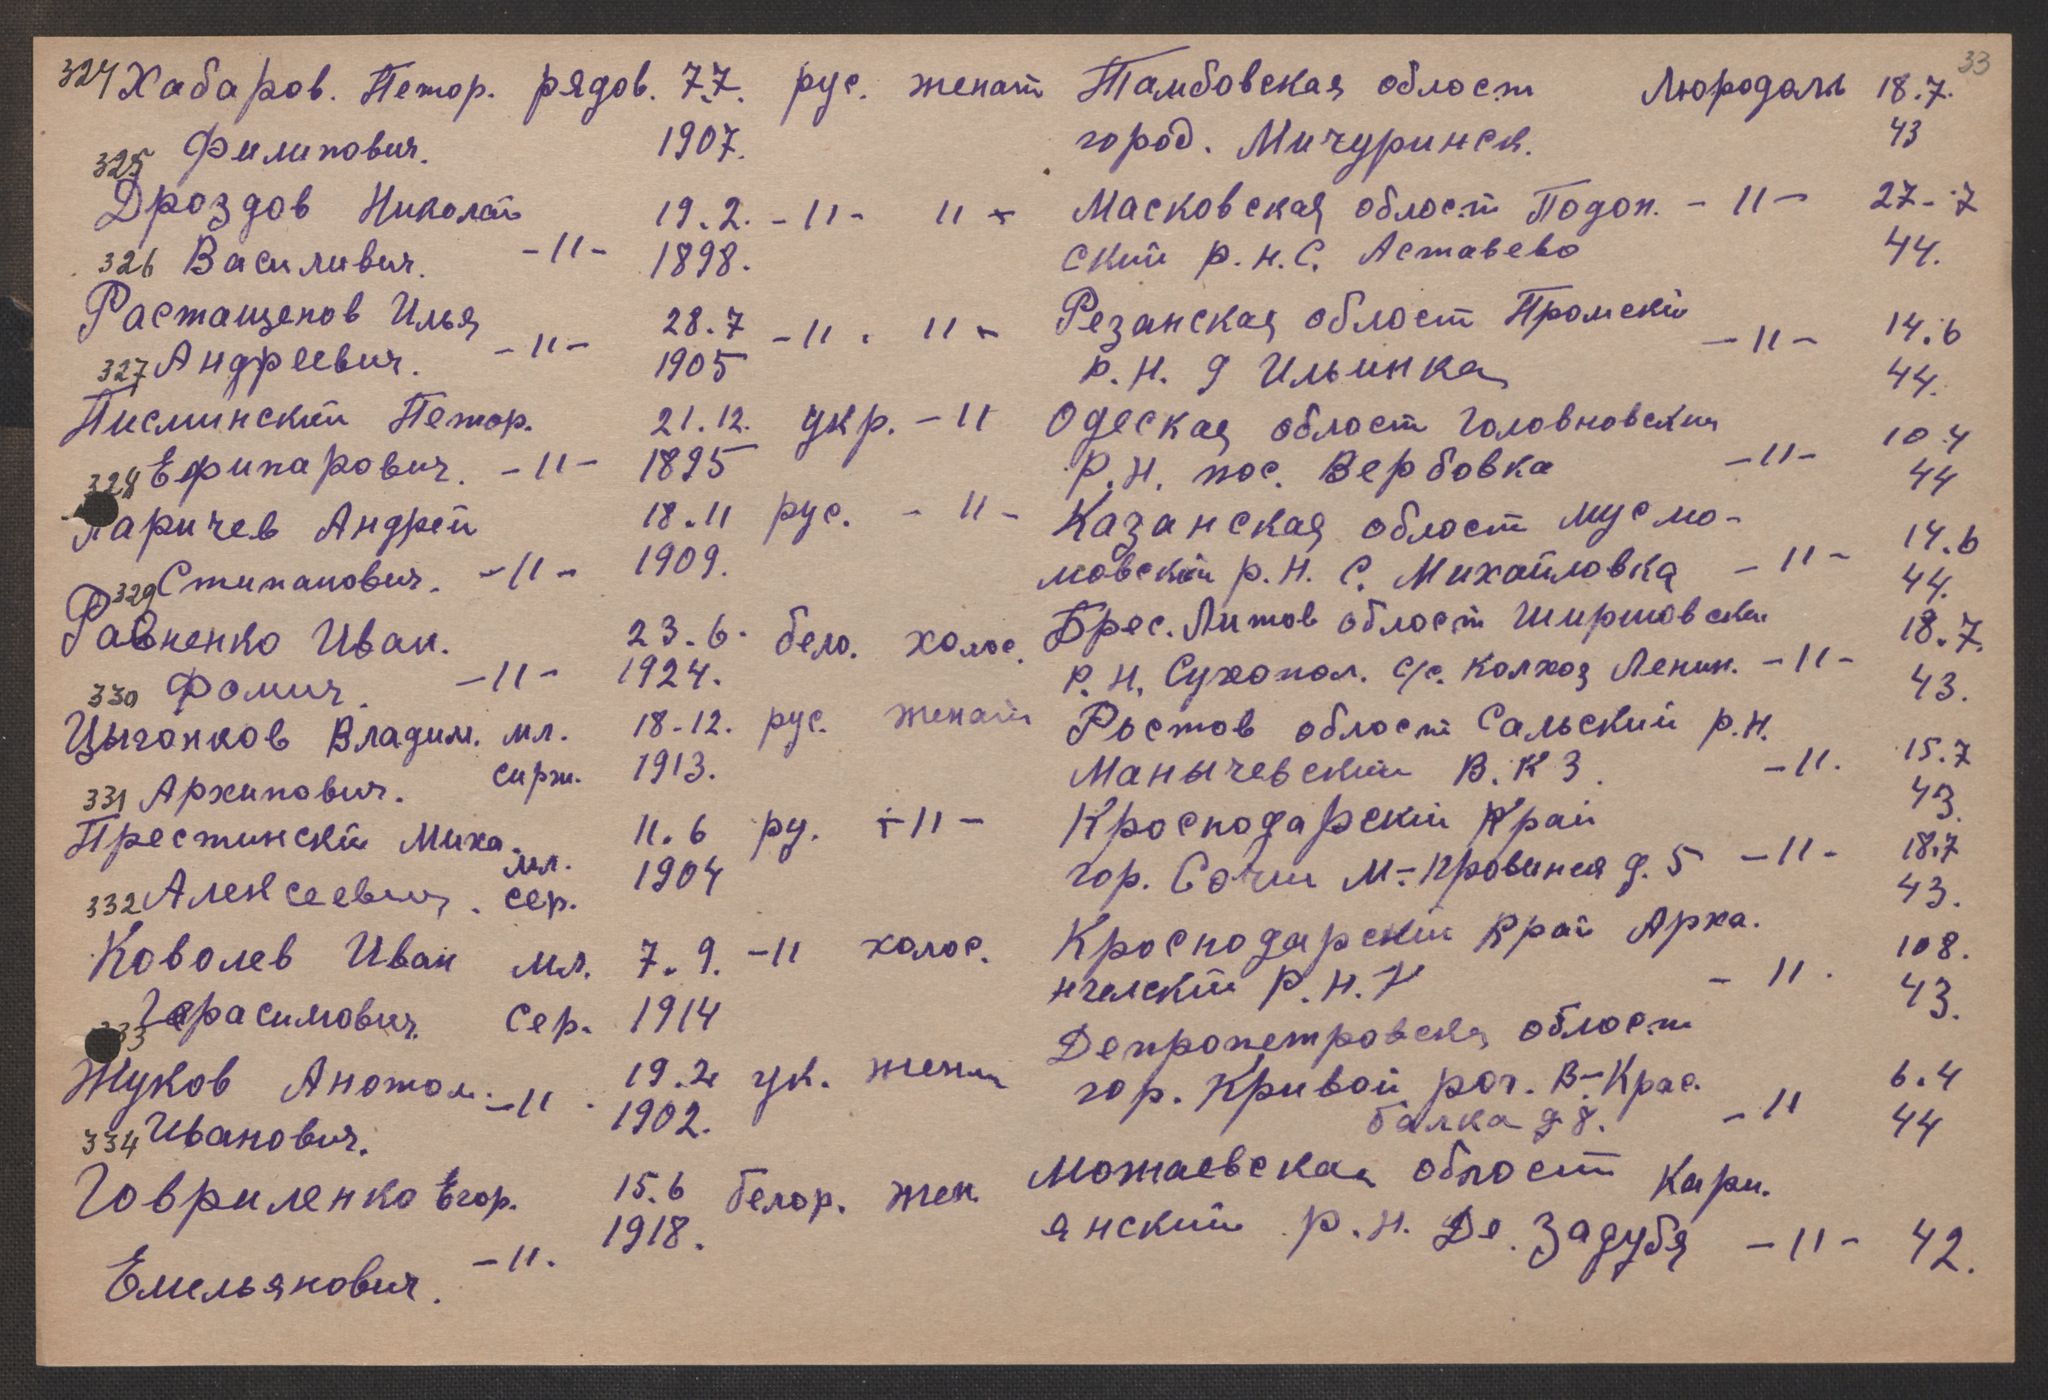 33
324 Хабаров. Петор. рядов. 7.7. рус. женат Тамбовская област Люродаль 18.7.
Филипович. 1907. город. Мичуринск. 43
325
Дроздов Николай 19.2. -11- 11- Масковская област Подол. -11- 27.7
326 Василивич. -11- 1898. ский р.н.с. Аставево 44.
Растащепов Илья 28.7 -11. 11- Резанская област Пронский 14.6
327 Андреевич. -11- 1905 р.н. д Ильинка -11- 44.
Писминский Петор. 21.12. укр. -11 Одеская област Головновский 10.4
328 Ефипарович. -11- 1895 р.н. пос. Вербовка -11- 44
Ларичев Андрей 18.11 рус. -11- Казанская област Муслю- 14.6
329 Стипанович. -11- 1909. мовский р.н. с. Михайловка -11- 44.
Равненко Иван. 23.6. бело. холос. Брес.Литов област Ширшовский 18.7.
330 Фомич. -11- 1924. р.н. Сухопол. с/с. колхоз Ленин. -11- 43.
Цыганков Владим. мл. 18-12. рус. женат Ростов област Сальский р.н.
331 Архипович. сирж. 1913. Манычевский В.К З. -11. 15.7
43.
Престинский Миха. мл. 11.6 ру. -11- Кросподарский Край
332 Алексеевич. сер. 1904 гор. Сочи М- д. 5 -11- 18.7
43.
Коволев Иван мл. 7.9. -11 холос. Кросподарский Край Арха. 108.
Герасимович сер. 1914 нгелский р.н. -11. 43.
333
Жуков Анотол. -11. 19.2 ук. женат Депропетровска област
334 Иванович. 1902. гор. Кривой рог. В-Крас. 6.4
балка д 8. -11 44
Говриленко Егор. 15.6 белор. жен.Можаевская област Кари.
Емельянович. -11. 1918. янский р.н. Де. Задубя -11- 42.